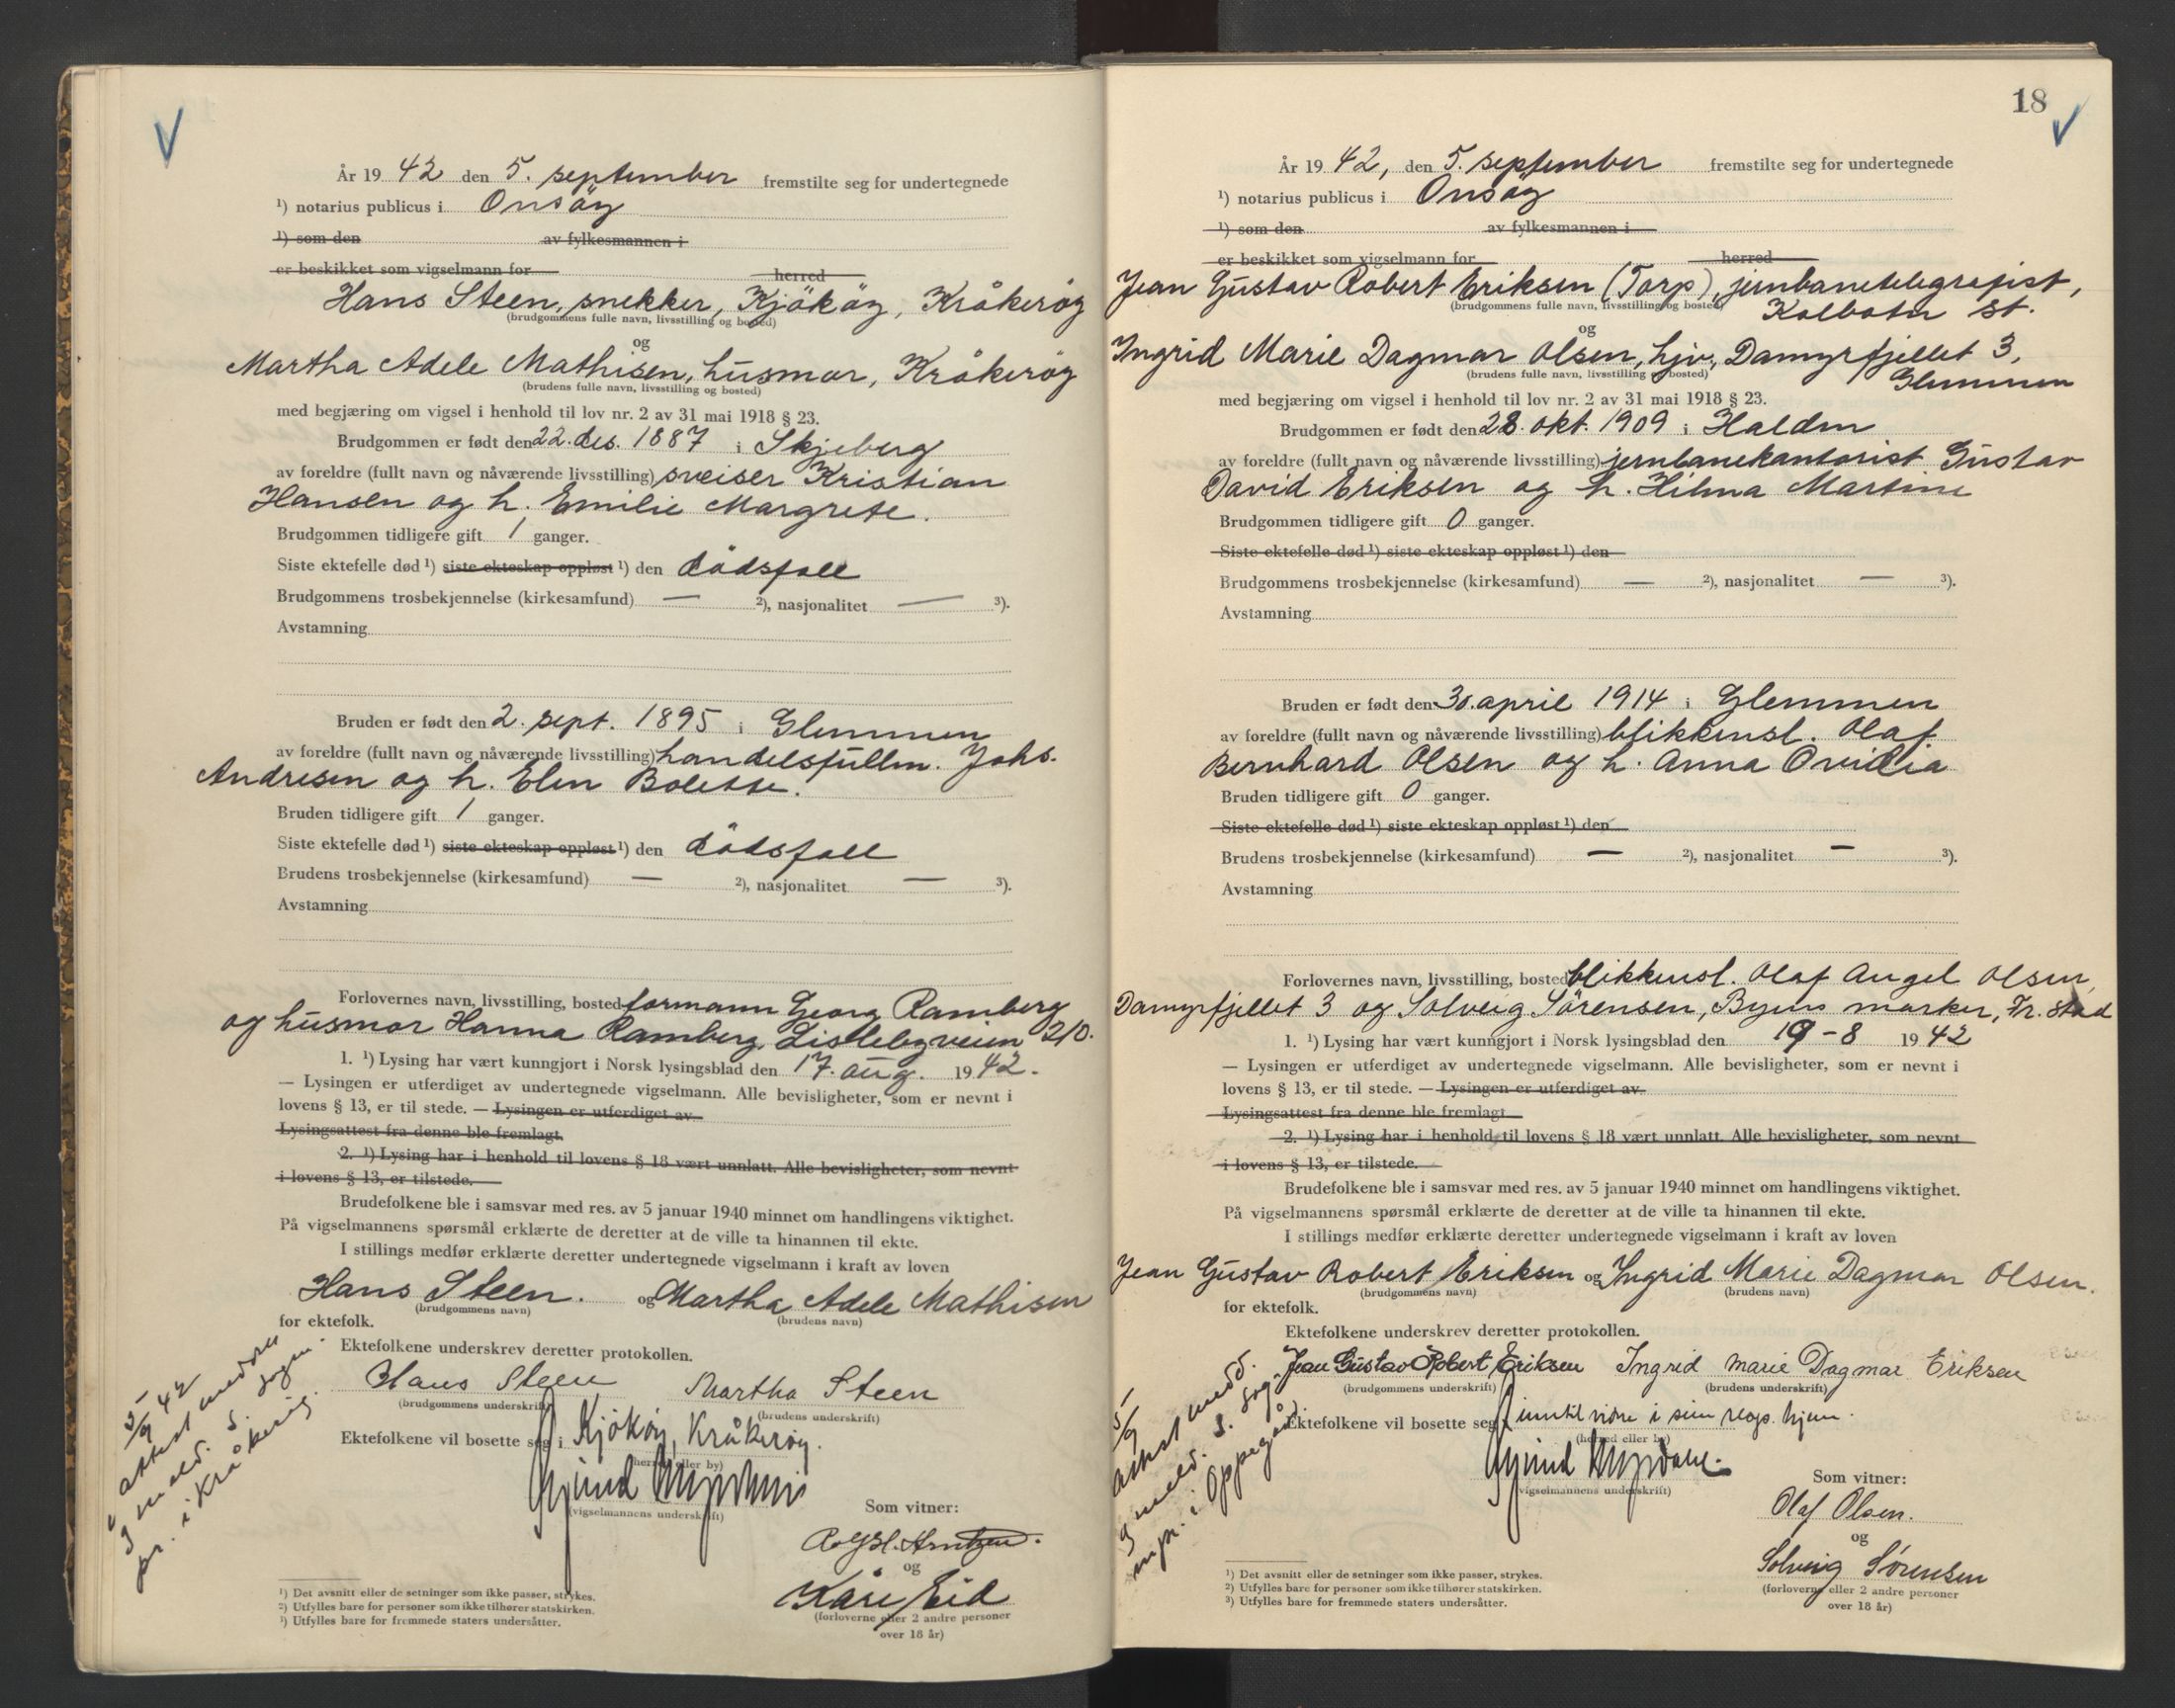 År 19 42 den 5. september fremstilte seg for undertegnede
¹) notarius publicus i Onsöy
¹) som den av fylkesmannen i
er beskikket som vigselmann for herred
Hans Steen, snekker, Kjököy, Kråkeröy
(brudgommens fulle navn, livsstilling og bosted)
og
Martha Adele Mathisen, husmor, Kråkeröy
(brudens fulle navn, livsstilling og bosted)
med begjæring om vigsel i henhold til lov nr. 2 av 31 mai 1918 § 23.
Brudgommen er født den 22. des. 1887 i Skjeberg
av foreldre (fullt navn og nåværende livsstilling) sveiser Kristian
Hansen og h. Emilie Margrete.
Brudgommen tidligere gift 1 ganger.
Siste ektefelle død ¹) siste ekteskap oppløst ¹) den dödsfall
Brudgommens trosbekjennelse (kirkesamfund) — ²), nasjonalitet — ³).
Avstamning
Bruden er født den 2. sept. 1895 i Glemmen
av foreldre (fullt navn og nåværende livsstilling) handelsfullm. Johs.
Andresen og h. Elen Bolette.
Bruden tidligere gift 1 ganger.
Siste ektefelle død ¹) siste ekteskap oppløst ¹) den dödsfall
Brudens trosbekjennelse (kirkesamfund) — ²), nasjonalitet — ³).
Avstamning
Forlovernes navn, livsstilling, bosted formann Georg Ramberg
og husmor Hanna Ramberg, Lislebyveien 210.
1. ¹) Lysing har vært kunngjort i Norsk lysingsblad den 17. aug. 19 42.
— Lysingen er utferdiget av undertegnede vigselmann. Alle bevisligheter, som er nevnt i
lovens § 13, er til stede. — Lysingen er utferdiget av
Lysingsattest fra denne ble fremlagt.
2. ¹) Lysing har i henhold til lovens § 18 vært unnlatt. Alle bevisligheter, som nevnt
i lovens § 13, er tilstede.
Brudefolkene ble i samsvar med res. av 5 januar 1940 minnet om handlingens viktighet.
På vigselmannens spørsmål erklærte de deretter at de ville ta hinannen til ekte.
I stillings medfør erklærte deretter undertegnede vigselmann i kraft av loven
Hans Steen. og Martha Adele Mathisen
(brudgommens navn) (brudens navn)
for ektefolk.
Ektefolkene underskrev deretter protokollen.
Hans Steen Martha Steen
(brudgommens underskrift) (brudens underskrift)
Ektefolkene vil bosette seg i Kjököy, Kråkeröy.
(herred eller by)
(vigselmannens underskrift)
Som vitner:
og
Kåre Eid
(forloverne eller 2 andre personer
over 18 år)
5/9 42
attest
og meld. s. sogne
pr. i Kråkeröy.
¹) Det avsnitt eller de setninger som ikke passer, strykes.
²) Utfylles bare for personer som ikke tilhører statskirken.
³) Utfylles bare for fremmede staters undersåtter.
18
År 19 42, den 5. september fremstilte seg for undertegnede
¹) notarius publicus i Onsöy
¹) som den av fylkesmannen i
er beskikket som vigselmann for herred
Jean Gustav Robert Eriksen (Torp), jernbanetelegrafist,
(brudgommens fulle navn, livsstilling og bosted) Kolbotn st.
og
Ingrid Marie Dagmar Olsen, hjv., Damyrfjellet 3,
(brudens fulle navn, livsstilling og bosted) Glemmen
med begjæring om vigsel i henhold til lov nr. 2 av 31 mai 1918 § 23.
Brudgommen er født den 28. okt. 1909 i Halden
av foreldre (fullt navn og nåværende livsstilling) jernbanekontorist Gustav
David Eriksen og h. Hilma Martine
Brudgommen tidligere gift 0 ganger.
Siste ektefelle død ¹) siste ekteskap oppløst ¹) den
Brudgommens trosbekjennelse (kirkesamfund) — ²), nasjonalitet — ³).
Avstamning
Bruden er født den 30. april 1914 i Glemmen
av foreldre (fullt navn og nåværende livsstilling) blikkensl. Olaf
Bernhard Olsen og h. Anna Ovidia
Bruden tidligere gift 0 ganger.
Siste ektefelle død ¹) siste ekteskap oppløst ¹) den
Brudens trosbekjennelse (kirkesamfund) — ²), nasjonalitet — ³).
Avstamning
Forlovernes navn, livsstilling, bosted blikkensl. Olaf Angel Olsen,
Damyrfjellet 3 og Solveig Sörensen, Byens marker, Fr.stad
1. ¹) Lysing har vært kunngjort i Norsk lysingsblad den 19-8 19 42
— Lysingen er utferdiget av undertegnede vigselmann. Alle bevisligheter, som er nevnt i
lovens § 13, er til stede. — Lysingen er utferdiget av
Lysingsattest fra denne ble fremlagt
2. ¹) Lysing har i henhold til lovens § 18 vært unnlatt. Alle bevisligheter, som nevnt
i lovens § 13, er tilstede.
Brudefolkene ble i samsvar med res. av 5 januar 1940 minnet om handlingens viktighet.
På vigselmannens spørsmål erklærte de deretter at de ville ta hinannen til ekte.
I stillings medfør erklærte deretter undertegnede vigselmann i kraft av loven
Jean Gustav Robert Eriksen og Ingrid Marie Dagmar Olsen.
(brudgommens navn) (brudens navn)
for ektefolk.
Ektefolkene underskrev deretter protokollen.
Jean Gustav Robert Eriksen Ingrid Marie Dagmar Eriksen
(brudgommens underskrift) (brudens underskrift)
Ektefolkene vil bosette seg i inntil videre i sine resp. hjem.
(herred eller by)
(vigselmannens underskrift)
Som vitner:
Olaf Olsen.
og
Solveig Sörensen
(forloverne eller 2 andre personer
over 18 år)
5/9
attest medd.
og meld. s. sog-
nepr. i Oppegård.
¹) Det avsnitt eller de setninger som ikke passer, strykes.
²) Utfylles bare for personer som ikke tilhører statskirken.
³) Utfylles bare for fremmede staters undersåtter.